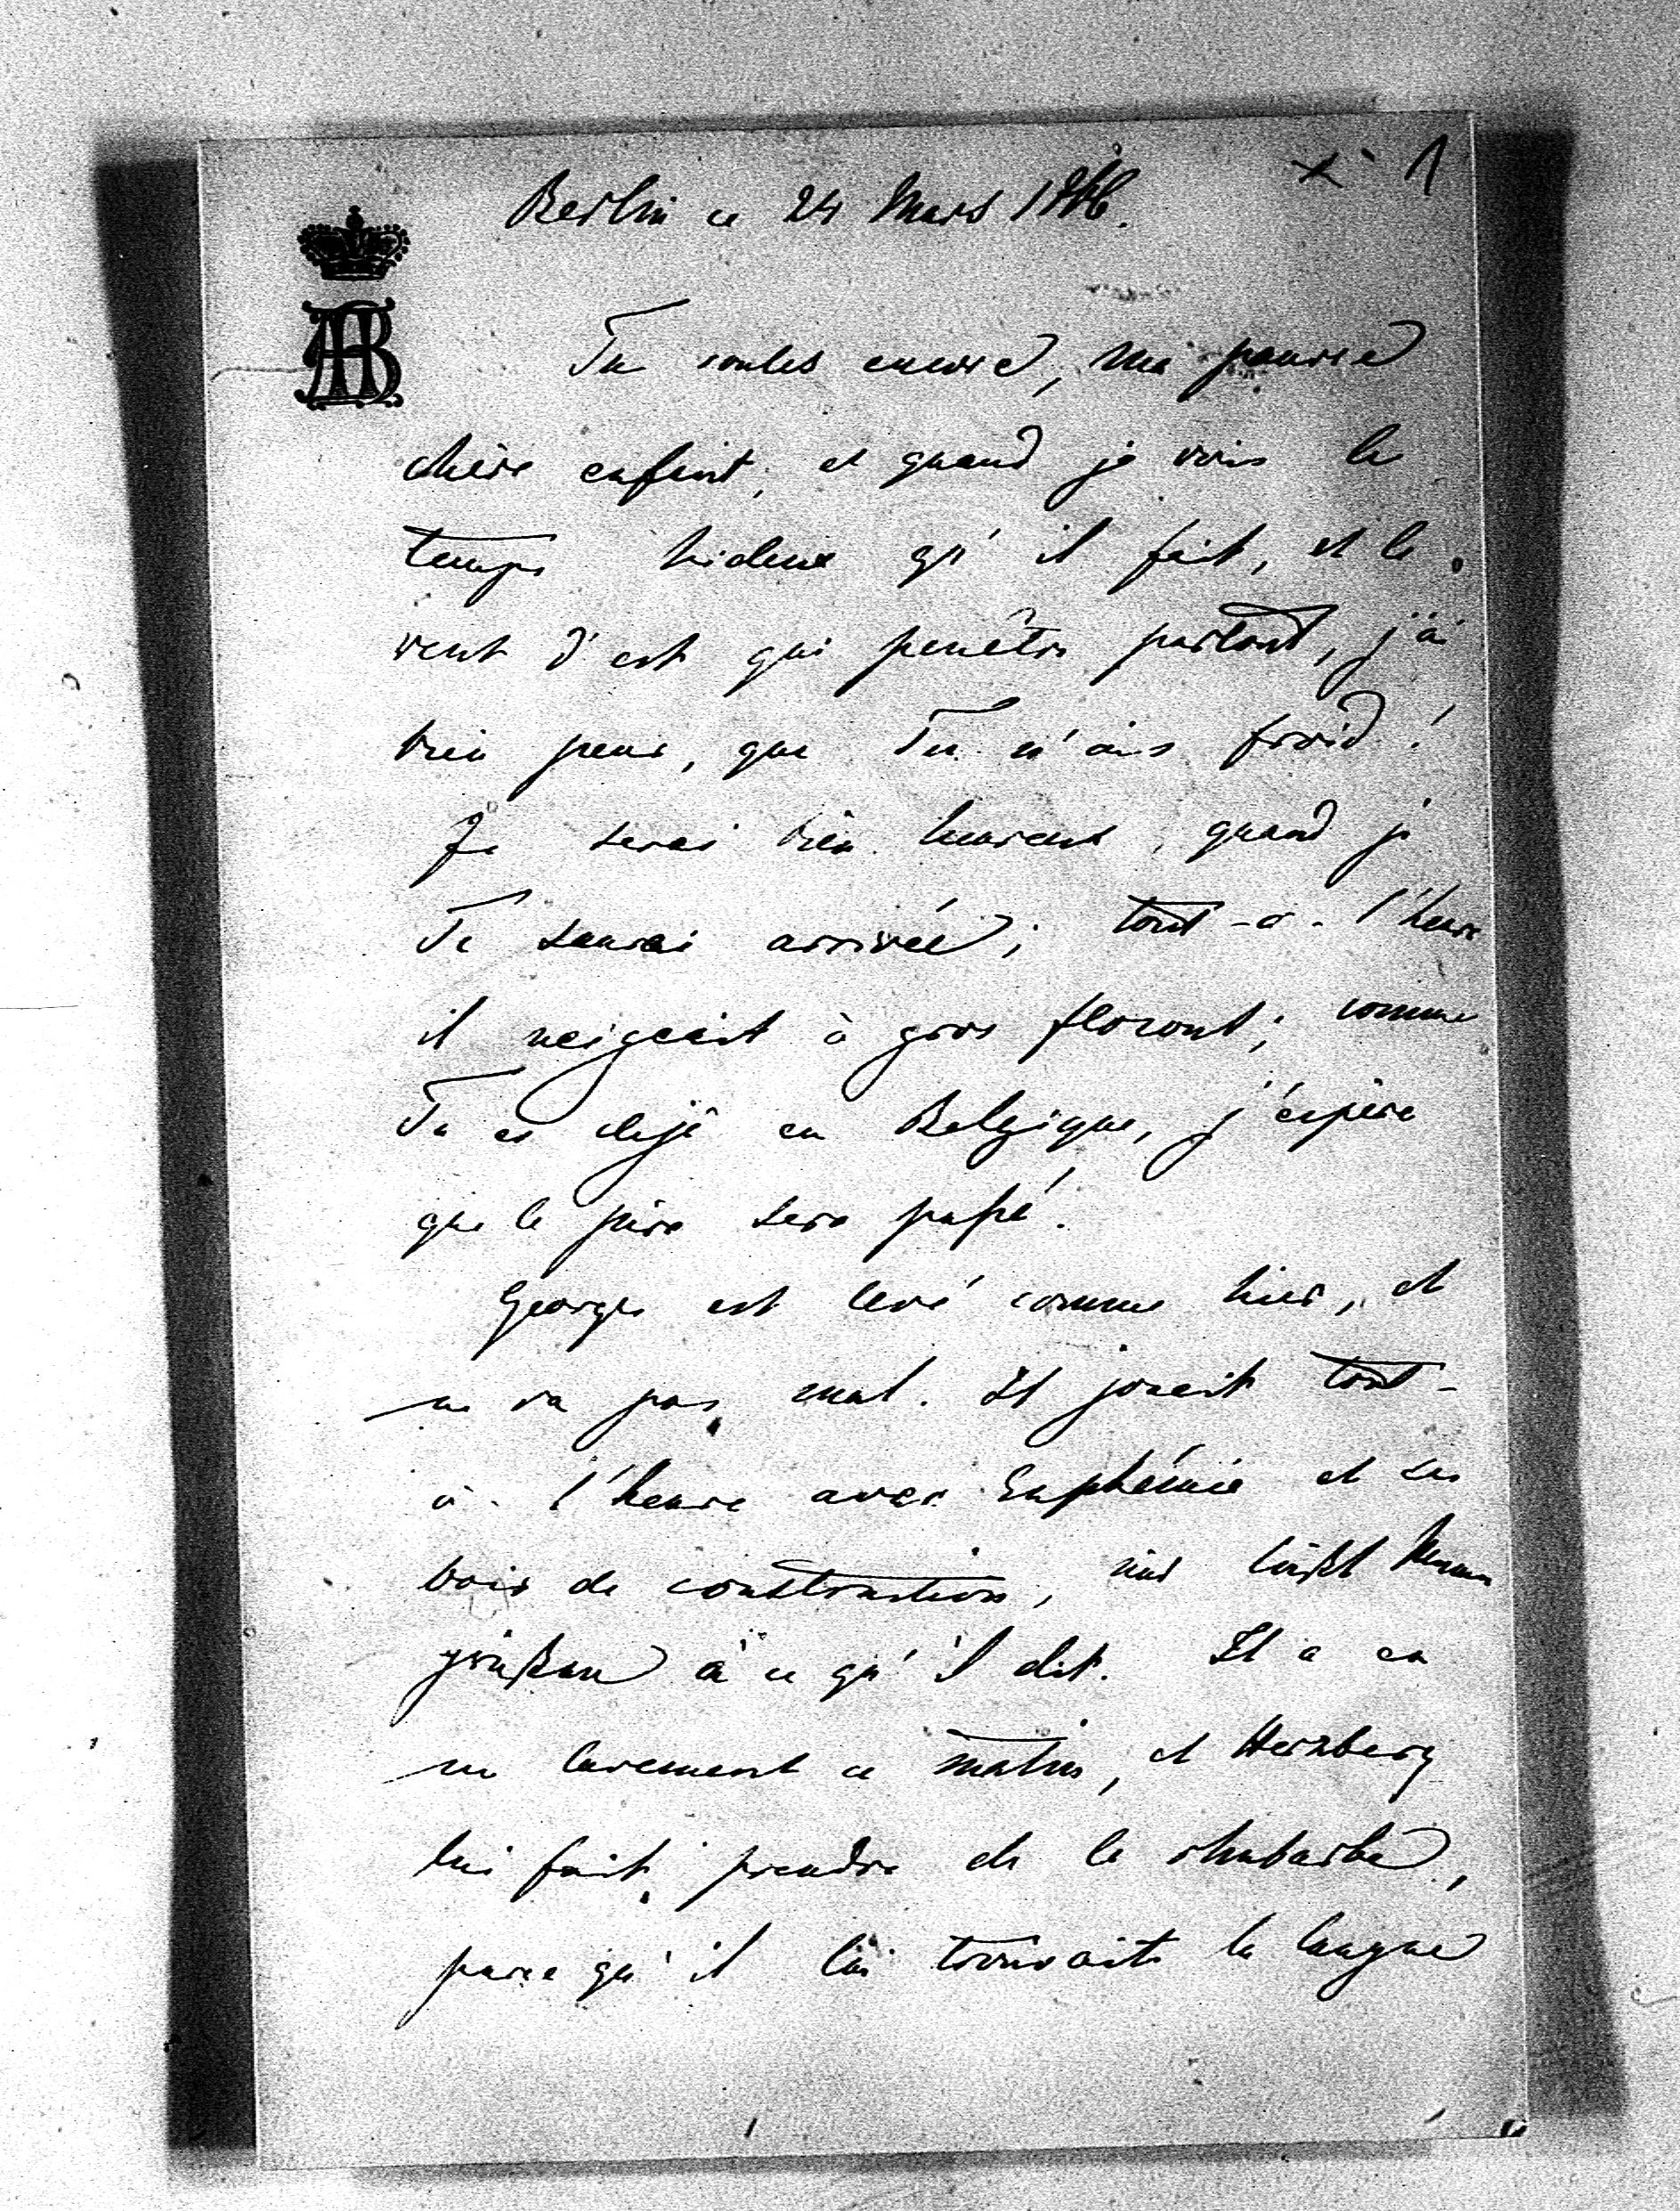 x 1
Berlin ce 24 Mars
AB
Tu roules encore, ma pauvre
chère enfant, et quand je vois le
temps hideux qu'il fait, et le
vent d'est qui penêtre partout, j'ai
bien peur, que Tu n'ais froid!
Je serai bien heureux, quand je
Te saurai arrivée; tout-à-l'heure
il neigeait à gros flocons; comme
Tu es dejà en Belgique, j'éspère
que le pire sera passé.
Georges est levé comme hier, et
ne va pas mal. Il jouait tout-
à-l'heure avec Euphémie et ses
bois de construction, und läßt Mama
grüßen à ce qu'il dit. Il a eu
un lavement ce matin, et Herzberg
lui fait prendre de la rhubarbe,
parce qu'il lui trouvait la langue